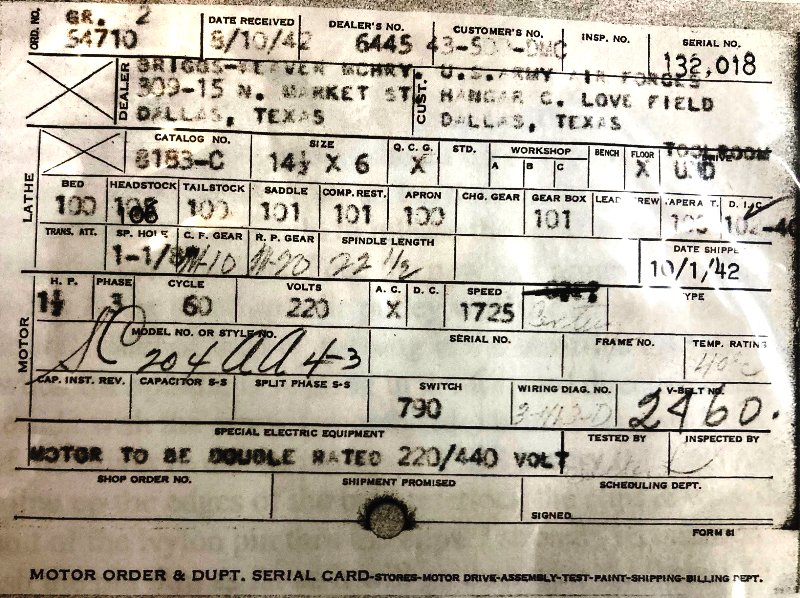 ORD. NO. GR. 2 DATE RECEIVED DEALER'S NO. CUSTOMER'S NO. INSP. NO. SERIAL NO.
54710 8/10/42 6445 132,018
DEALER BRIGGS-WEAVER MCHRY. CUST. U.S. ARMY AIR FORCES
309-15 N. MARKET ST. HANGAR C. LOVE FIELD
DALLAS, TEXAS DALLAS, TEXAS
LATHE CATALOG NO. SIZE Q. C. G. STD. WORKSHOP BENCH FLOOR TOOL ROOM
A B C
8183-C 14½ X 6 X X
BED HEADSTOCK TAILSTOCK SADDLE COMP. REST. APRON CHG. GEAR GEAR BOX LEAD
100 100 101 101 100 101
TRANS. ATT. C. F. GEAR R. P. GEAR SPINDLE LENGTH DATE SHIPPE
22 ½ 10/1,'42
MOTOR H. P. PHASE CYCLE VOLTS A. C. D. C. SPEED TYPE
1½ 3 60 220 X 1725
MODEL NO. OR STYLE NO. SERIAL NO. FRAME NO. TEMP. RATING
SC 204 AA 4-3 40°C
CAP. INST. REV. CAPACITOR S-S SPLIT PHASE S-S SWITCH WIRING DIAG. NO. V-BELT NO.
790 2460.
SPECIAL ELECTRIC EQUIPMENT TESTED BY INSPECTED BY
MOTOR TO BE DOUBLE RATED 220/440 VOLT
SHOP ORDER NO. SHIPMENT PROMISED SCHEDULING DEPT.
SIGNED
FORM 81
MOTOR ORDER & DUPT. SERIAL CARD-STORES-MOTOR DRIVE-ASSEMBLY-TEST-PAINT-SHIPPING-BILLING DEPT.